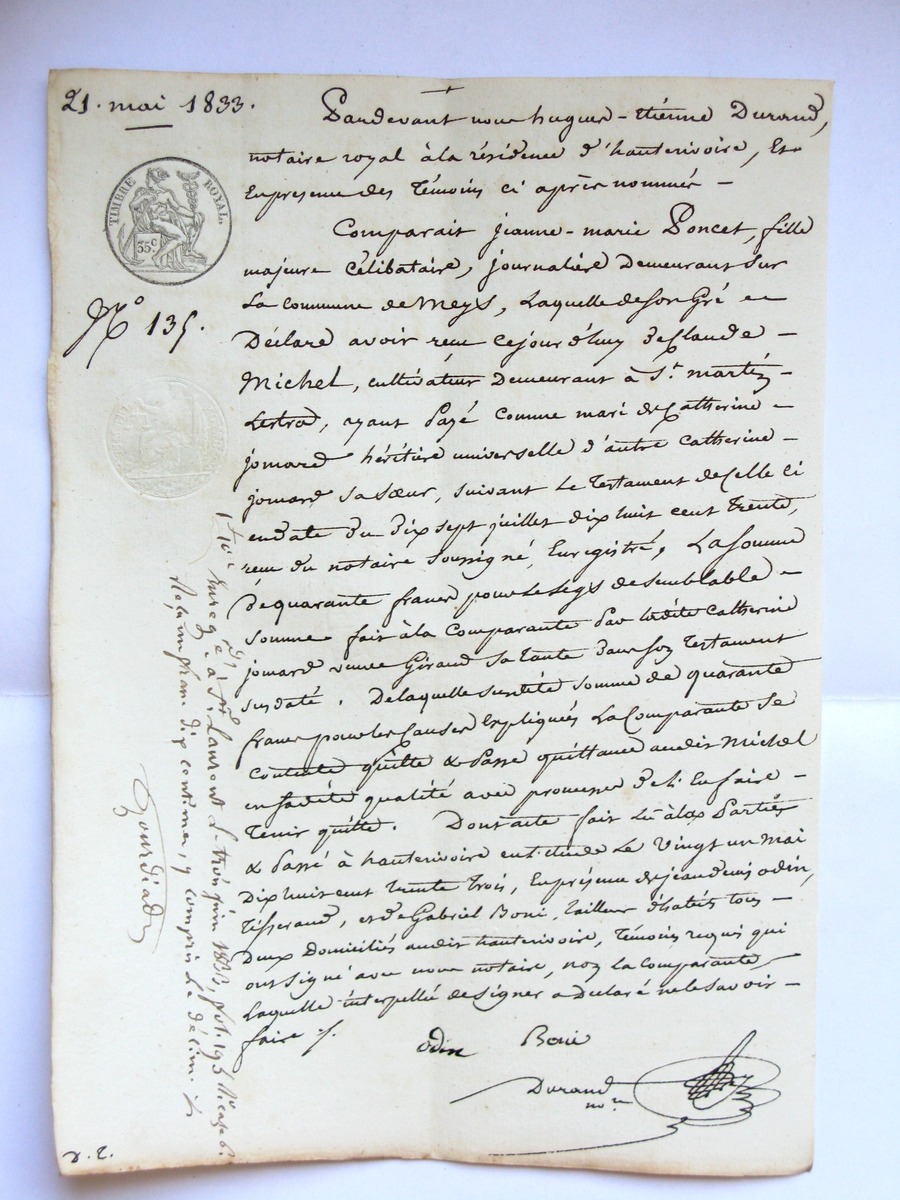 21. mai 1833.
TIMBRE ROYAL.
35c
No 135.
Pardevant nous hugues-étienne Durand,
notaire royal à la résidence d'hauterivoire, Et
En présence des témoins ci après nommés —
Comparait jeanne-marie Poncet, fille
majeure célibataire, journalière demeurant sur
La commune de Meys, Laquelle de son Gré a
Déclaré avoir reçu cejourd'huy de Claude —
Michel, cultivateur demeurant à St. martin —
Lestra, ayant Payé comme mari de Catherine —
jomard héritière universelle d'autre Catherine —
jomard sa sœur, suivant Le testament de Celle ci
en date du dix sept juillet dix huit cent trente,
reçu du notaire soussigné, Enregistré, La somme
de quarante francs pour Le Legs de semblable —
somme fait à la Comparante Par ladite Catherine
jomard veuve Giraud sa tante dans son testament
susdaté. De laquelle susdite somme de quarante
francs pour les Causes Expliquées La Comparante se
contente quitte & Passe quittance audit Michel
en sadite qualité avec promesse de L'En faire —
tenir quitte. Dont acte fait Lu à la Parties
& Passé à hauterivoire en étude Le Vingt un Mai
Dix huit cent trente trois, En présence de jean denis odin,
tisserand, et de Gabriel Boni, tailleur d'habits tous —
Deux Domiciliés audit hauterivoire, témoins requis qui
ont signé avec nous notaire, non la comparante,
Laquelle interpellée de signer a déclaré ne le savoir —
faire ./.
odin Boni
Durand
nre
Enreg. à St. Laurent Le trois juin 1833, fol. 195
Reçu un franc dix centimes, y compris Le décime
Gourdiad